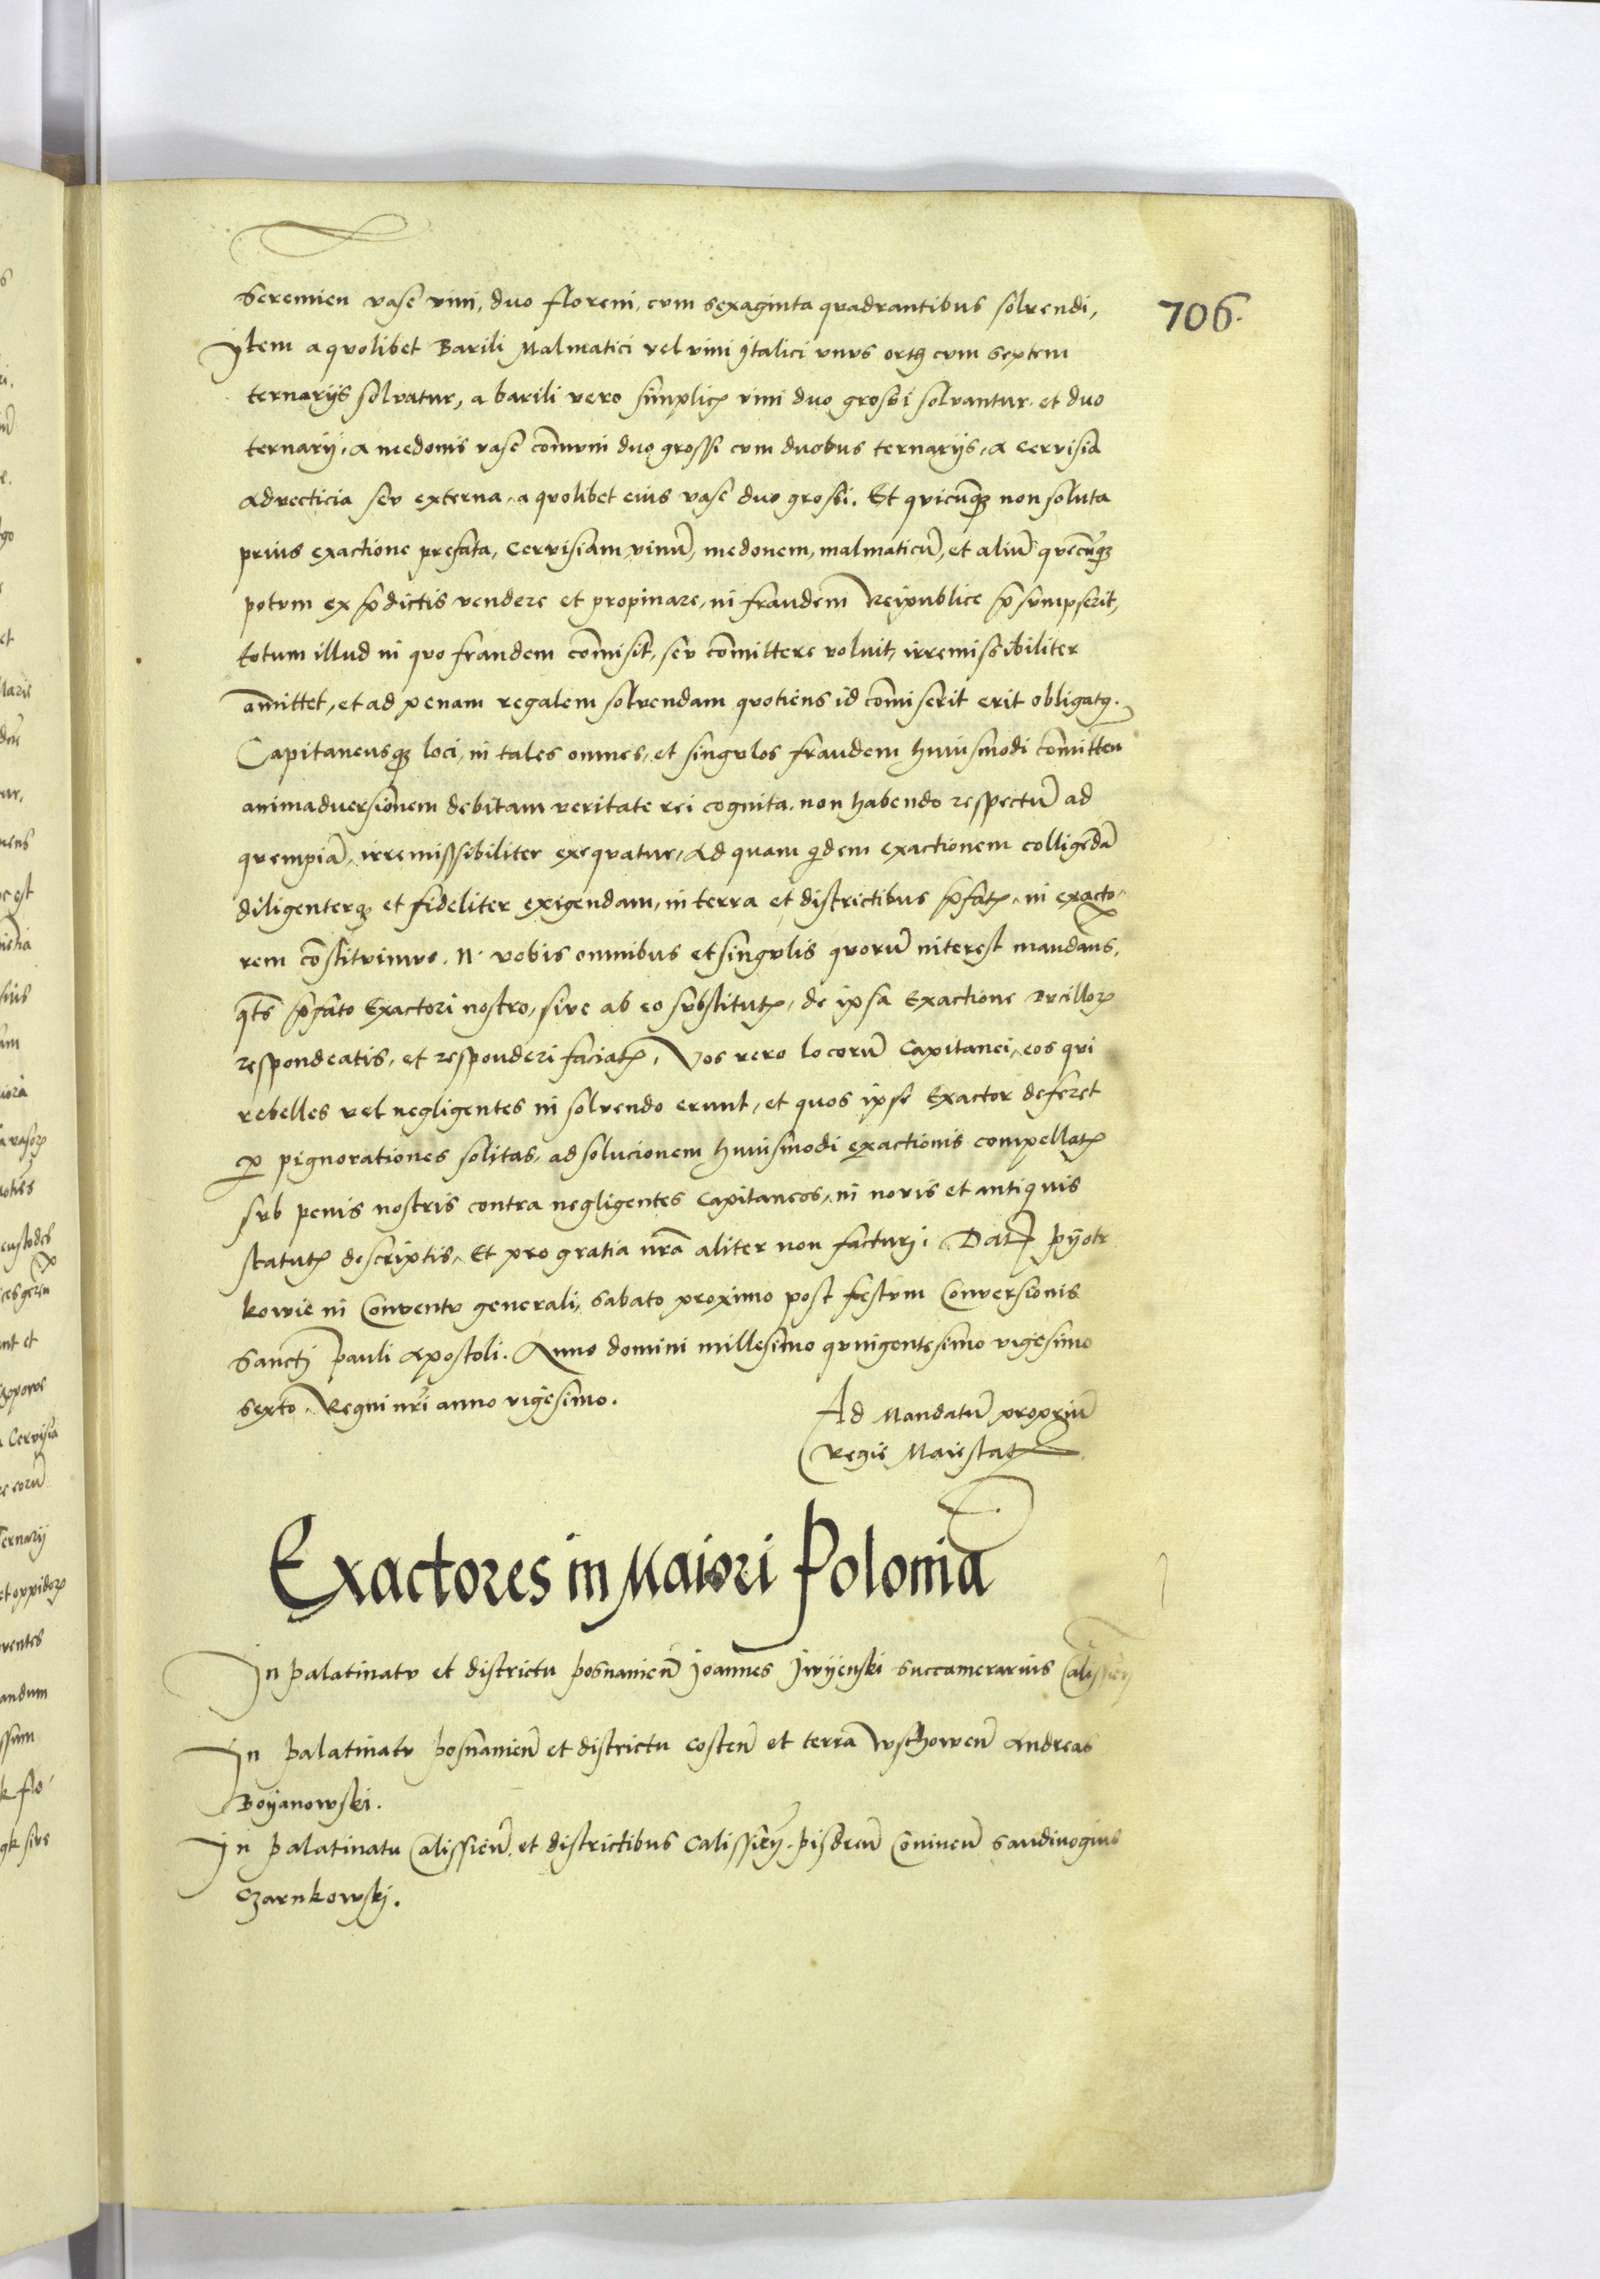 706.
Seremien vase vini, duo floreni, cvm sexaginta quadrantibus solvendi,
Jtem a qvolibet Barili Malmatici vel vini Jtalici vnvs ortꝰ cvm septem
ternarijs solvatur, a barili vero simplicꝭ vini dvo grossi solvantur. et dvo
ternarij, A medonis vase com̄vni dvo grossi cvm dvobus ternarijs, A cervisia
Advecticia sev externa, a qvolibet eius vase dvo grossi. Et qvicūqꝫ non soluta
prius exactione prefata, cervisiam, vinū, medonem, malmaticū, et aliū qvēcūqꝫ
potvm ex p̄dictis vendere et propinare, in fraudem Reipvblice p̄svmpserit,
totum illud in qvo fraudem com̄isit, sev com̄ittere volvit, irremissibiliter
am̄ittet, et ad penam regalem solvendam qvotiens id com̄iserit erit obligatꝰ.
Capitaneusqꝫ loci, in tales omnes, et singvlos fraudem hvivsmodi com̄itten̄
animaduersionem debitam veritate rei cognita. non habendo respectū ad
qvempiā, irremissibiliter exeqvatur, Ad quam qͥdem exactionem colligēdā
diligenterqꝫ et fideliter exigendam, in terra et districtibus p̄fatꝭ, in exacto-
rem cōstitvimvs. N. vobis omnibus et singvlis qvorū interest mandan̄s,
qͣt̄s p̄fato Exactori nostro, sive ab eo svbstitutꝭ, de ipsa Exactione Dvcilloꝝ
respondeatis, et responderi faciatꝭ, Vos vero locorū Capitanei, eos qvi
rebelles vel negligentes in solvendo ervnt, et quos ipse Exactor deferet
ꝑ pignorationes solitas, ad solucionem hvivsmodi exactionis compellatꝭ
svb penis nostris contra negligentes Capitaneos, in novis et antiqvis
statutꝭ descriptis, Et pro gratia nr̄a aliter non facturj. Datꝭ Pyotr
kovie in Conventv generali, Sabato proximo post festvm Conversionis
Sanctj Pauli Apostoli. Anno domini millesimo qvingentesimo vigesimo
sexto. Regni nr̄i anno vigesimo.
Ad Mandatū propriū
Regie Maiestatꝭ
Exactores in Maiori Polonia
Jn Palatinatv et districtu Posnanien̄ Joannes Jwyenski Svccamerarivs Calissien̄
Jn Palatinatv Posnanien̄ et districtu Costen̄ et terra Wschowen̄ Andreas
Boyanowski.
Jn Palatinatu Calissien̄. et districtibus Calissien̄. Pisdren̄ Coninen̄ Sandivogius
Czarnkowskj.